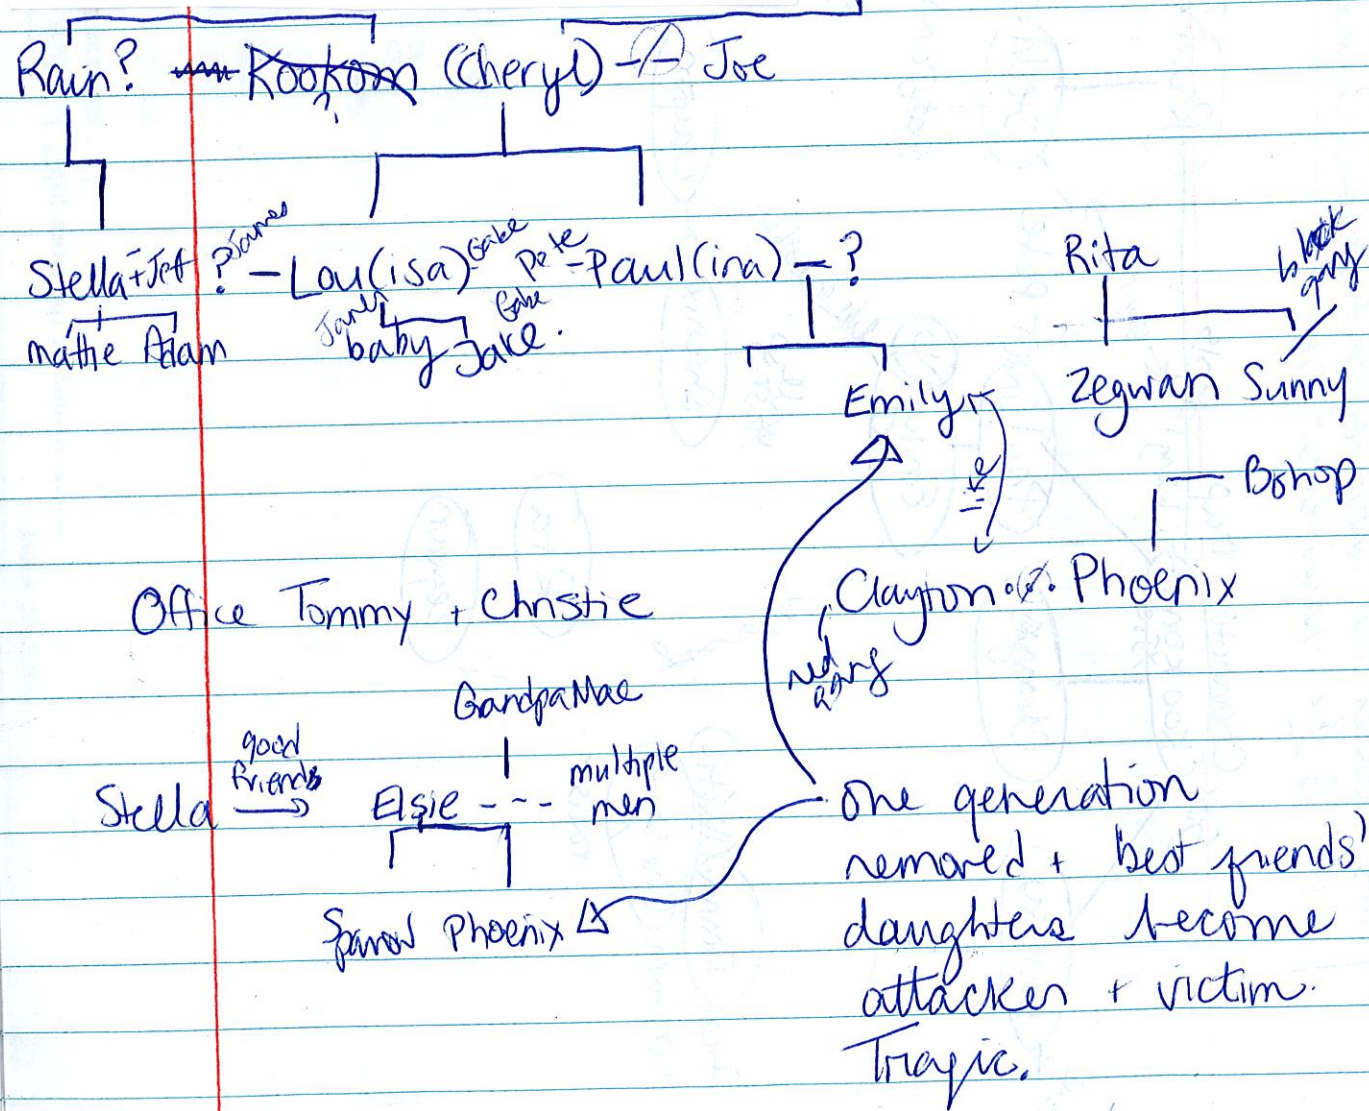 Rain? Kookom (Cheryl) -/- Joe
?
Stella + Jeff ? James - Lou(isa) Gabe Pete - Paul(ina) - ? Rita black gang
mattie Adam James baby Jake. Gabe
Emily Zegwan Sunny
like
Bishop
Clayton Phoenix
red gang
Office Tommy + Christie
Grandpa Mac
good friends
Stella Elsie --- multiple men
Sparrow Phoenix
one generation
removed + best friends'
daughters become
attacker + victim.
Tragic.